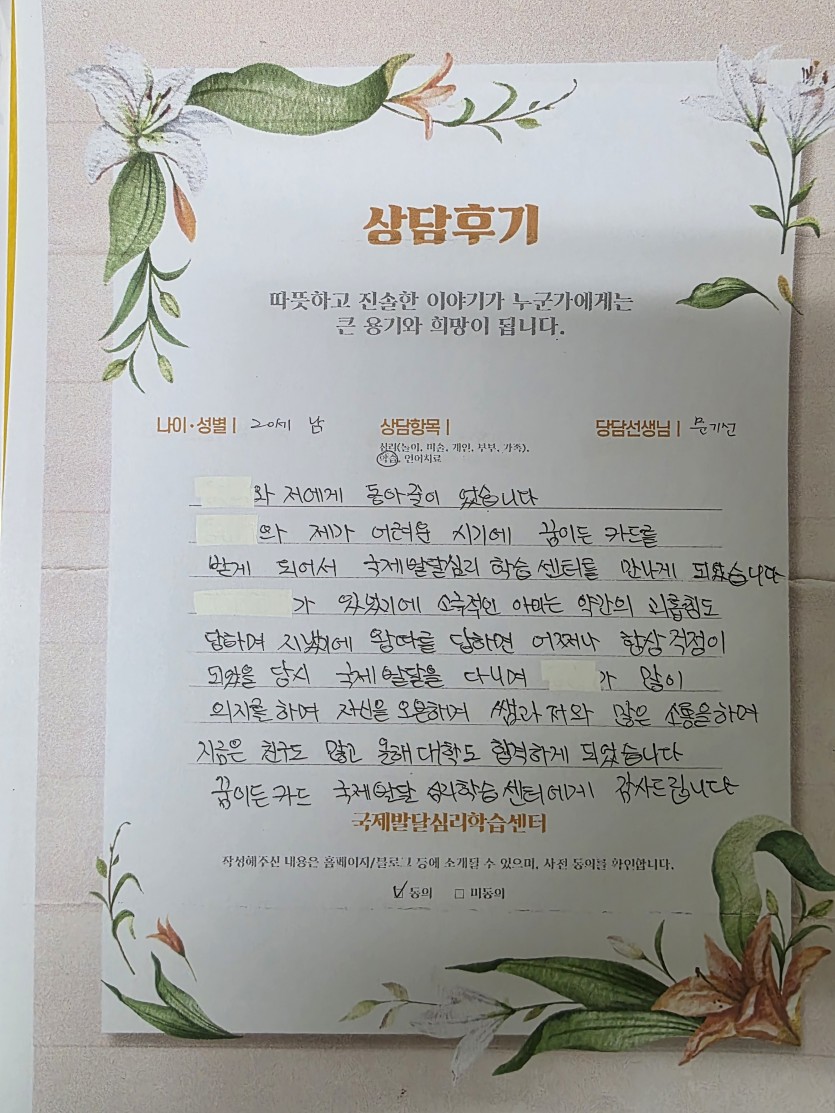 상담후기
따뜻하고 진솔한 이야기가 누군가에게는
큰 용기와 희망이 됩니다.
나이·성별 | 20세 남 상담항목 | 당담선생님 | 문기선
심리(놀이, 미술, 개인, 부부, 가족),
학습, 언어치료
와 저에게 동아줄이 었습니다
와 제가 어려운 시기에 꿈이든 카드를
받게 되어서 국제발달심리 학습 센터를 만나게 되었습니다
가 있었기에 소극적인 아이는 약간의 괴롭힘도
당하며 지냈기에 왕따를 당하면 어쩌나 항상 걱정이
되었을 당시 국제발달을 다니며 가 많이
의지를 하며 자신을 오픈하며 쌤과 저와 많은 소통을하며
지금은 친구도 많고 올해 대학도 합격하게 되었습니다
꿈이든 카드 국제발달 심리학습 센터에게 감사드립니다
국제발달심리학습센터
작성해주신 내용은 홈페이지/블로그 등에 소개될 수 있으며, 사전 동의를 확인합니다.
동의 미동의